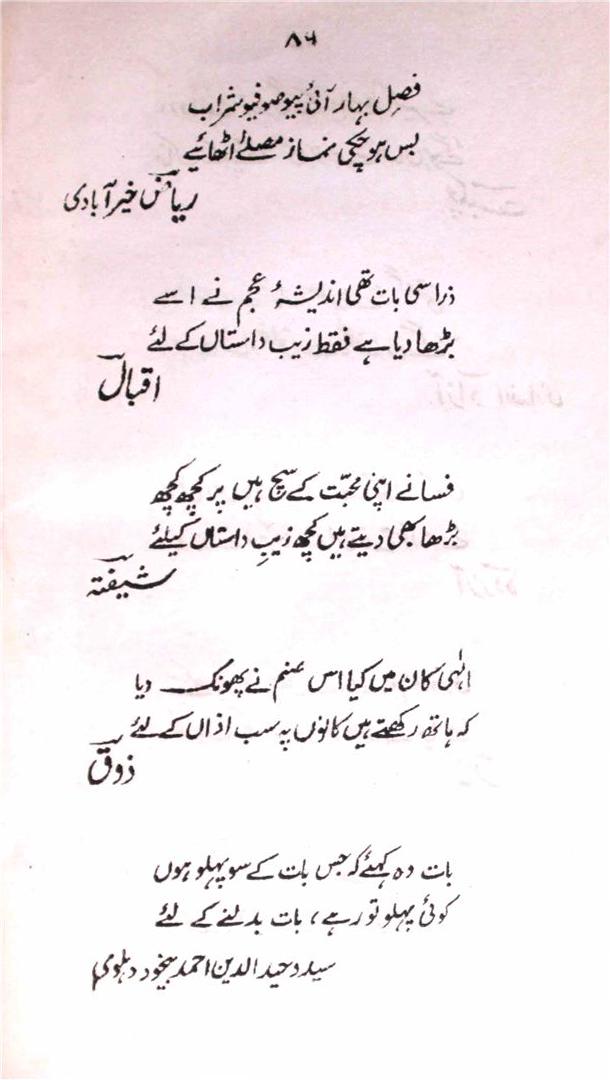 ۸۶
فصلِ بہار آئی پیو صوفیو شراب
بس ہو چکی نماز مصلےٰ اٹھائیے
ریاض خیرآبادی
ذرا سی بات تھی اندیشۂ عجم نے اسے
بڑھا دیا ہے فقط زیب داستاں کے لئے
اقبال
فسانے اپنی محبّت کے سچ ہیں پر کچھ کچھ
بڑھا بھی دیتے ہیں کچھ زیبِ داستاں کیلئے
شیفتہ
الٰہی کان میں کیا اس صنم نے پھونک دیا
کہ ہاتھ رکھتے ہیں کانوں پہ سب اذاں کے لئے
ذوق
بات وہ کہئے کہ جس بات کے سو پہلو ہوں
کوئی پہلو تو رہے، بات بدلنے کے لئے
سید وحید الدین احمد بیخود دہلوی